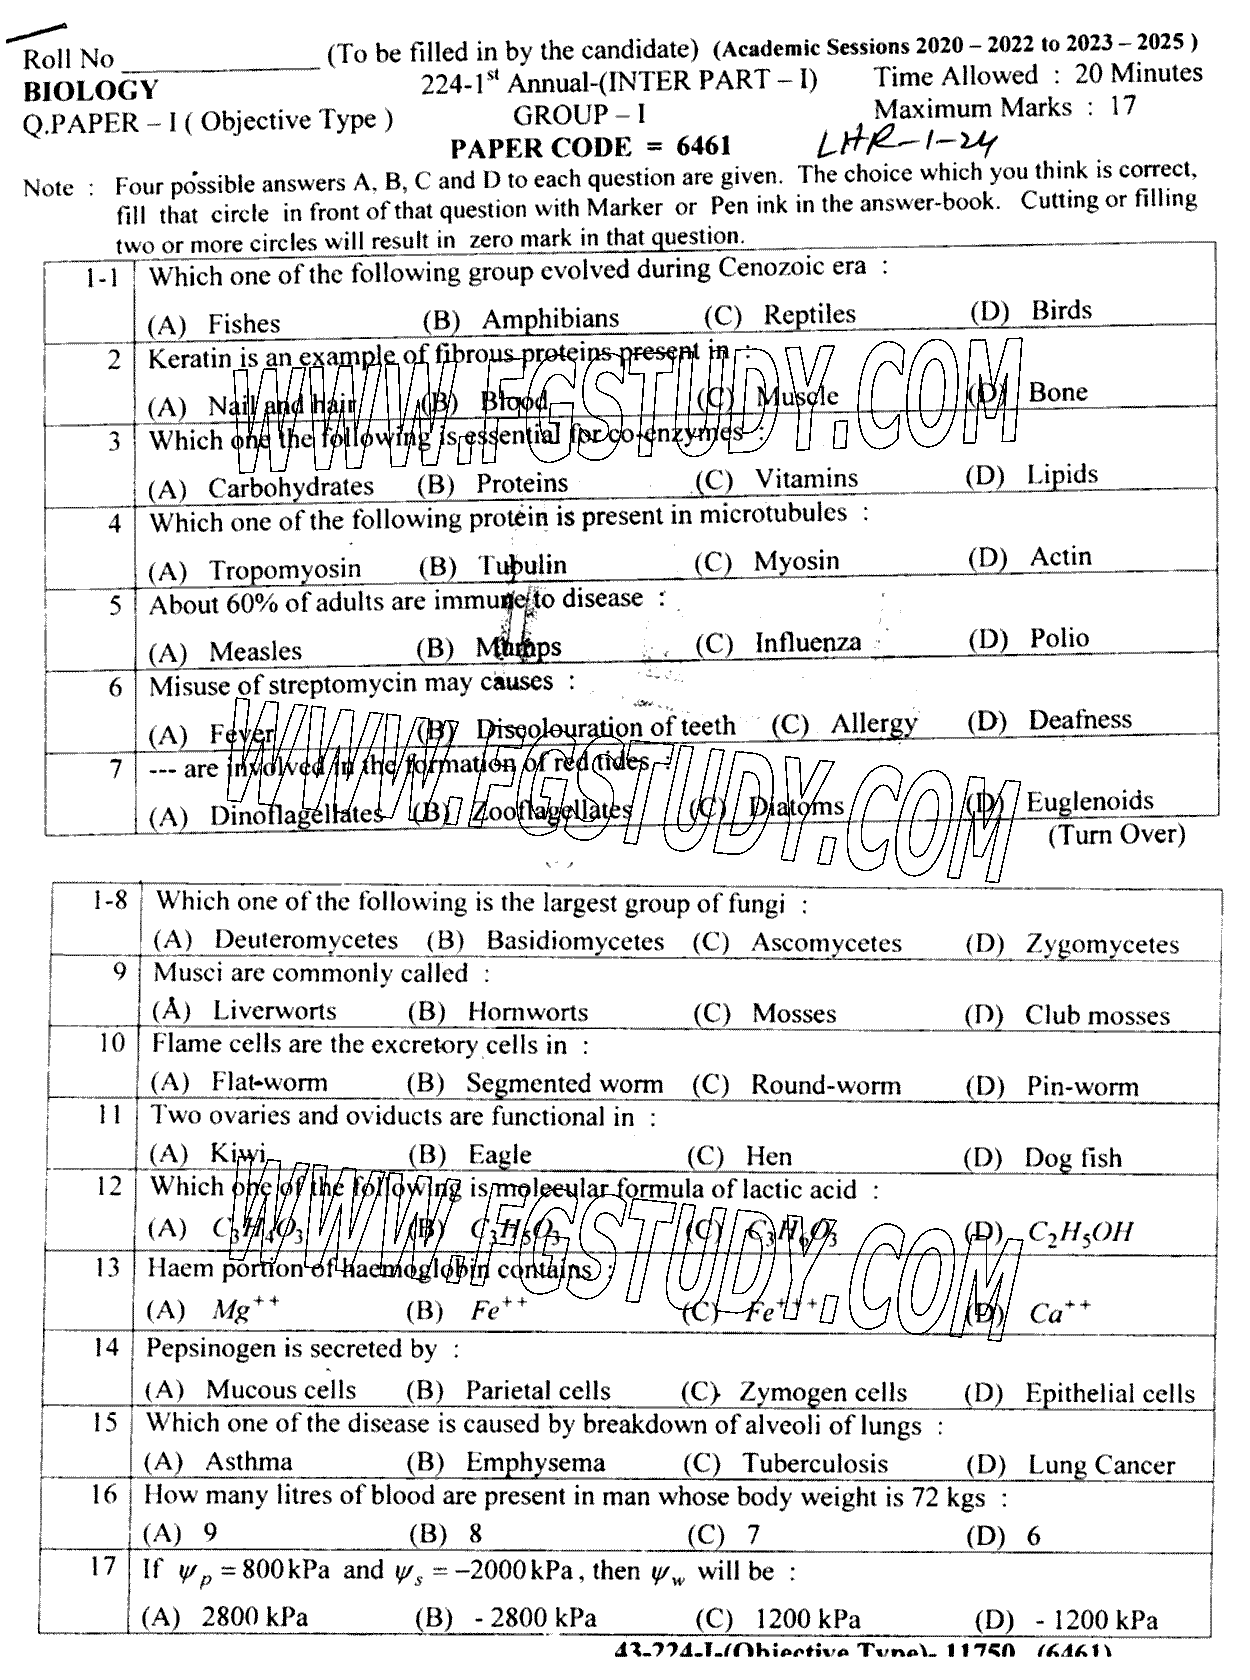 Roll No ______________ (To be filled in by the candidate) (Academic Sessions 2020 – 2022 to 2023 – 2025 )
BIOLOGY 224-1st Annual-(INTER PART – I) Time Allowed : 20 Minutes
Q.PAPER – I ( Objective Type ) GROUP – I Maximum Marks : 17
PAPER CODE = 6461 LHR-1-24
Note : Four possible answers A, B, C and D to each question are given. The choice which you think is correct,
fill that circle in front of that question with Marker or Pen ink in the answer-book. Cutting or filling
two or more circles will result in zero mark in that question.
1-1 Which one of the following group evolved during Cenozoic era :
(A) Fishes (B) Amphibians (C) Reptiles (D) Birds
2 Keratin is an example of fibrous proteins present in :
(A) Nail and hair (B) Blood (C) Muscle (D) Bone
WWW.FGSTUDY.COM
3 Which one the following is essential for co-enzymes :
(A) Carbohydrates (B) Proteins (C) Vitamins (D) Lipids
4 Which one of the following protein is present in microtubules :
(A) Tropomyosin (B) Tubulin (C) Myosin (D) Actin
5 About 60% of adults are immune to disease :
(A) Measles (B) Mumps (C) Influenza (D) Polio
6 Misuse of streptomycin may causes :
(A) Fever (B) Discolouration of teeth (C) Allergy (D) Deafness
WWW.FGSTUDY.COM
7 --- are involved in the formation of red tides :
(A) Dinoflagellates (B) Zooflagellates (C) Diatoms (D) Euglenoids
(Turn Over)
1-8 Which one of the following is the largest group of fungi :
(A) Deuteromycetes (B) Basidiomycetes (C) Ascomycetes (D) Zygomycetes
9 Musci are commonly called :
(A) Liverworts (B) Hornworts (C) Mosses (D) Club mosses
10 Flame cells are the excretory cells in :
(A) Flat-worm (B) Segmented worm (C) Round-worm (D) Pin-worm
11 Two ovaries and oviducts are functional in :
(A) Kiwi (B) Eagle (C) Hen (D) Dog fish
12 Which one of the following is molecular formula of lactic acid :
(A) C3H4O3 (B) C3H5O3 (C) C3H6O3 (D) C2H5OH
WWW.FGSTUDY.COM
13 Haem portion of haemoglobin contains :
(A) Mg++ (B) Fe++ (C) Fe+++ (D) Ca++
14 Pepsinogen is secreted by :
(A) Mucous cells (B) Parietal cells (C) Zymogen cells (D) Epithelial cells
15 Which one of the disease is caused by breakdown of alveoli of lungs :
(A) Asthma (B) Emphysema (C) Tuberculosis (D) Lung Cancer
16 How many litres of blood are present in man whose body weight is 72 kgs :
(A) 9 (B) 8 (C) 7 (D) 6
17 If ψp = 800 kPa and ψs = –2000 kPa , then ψw will be :
(A) 2800 kPa (B) - 2800 kPa (C) 1200 kPa (D) - 1200 kPa
43-224-I-(Objective Type)- 11750 (6461)